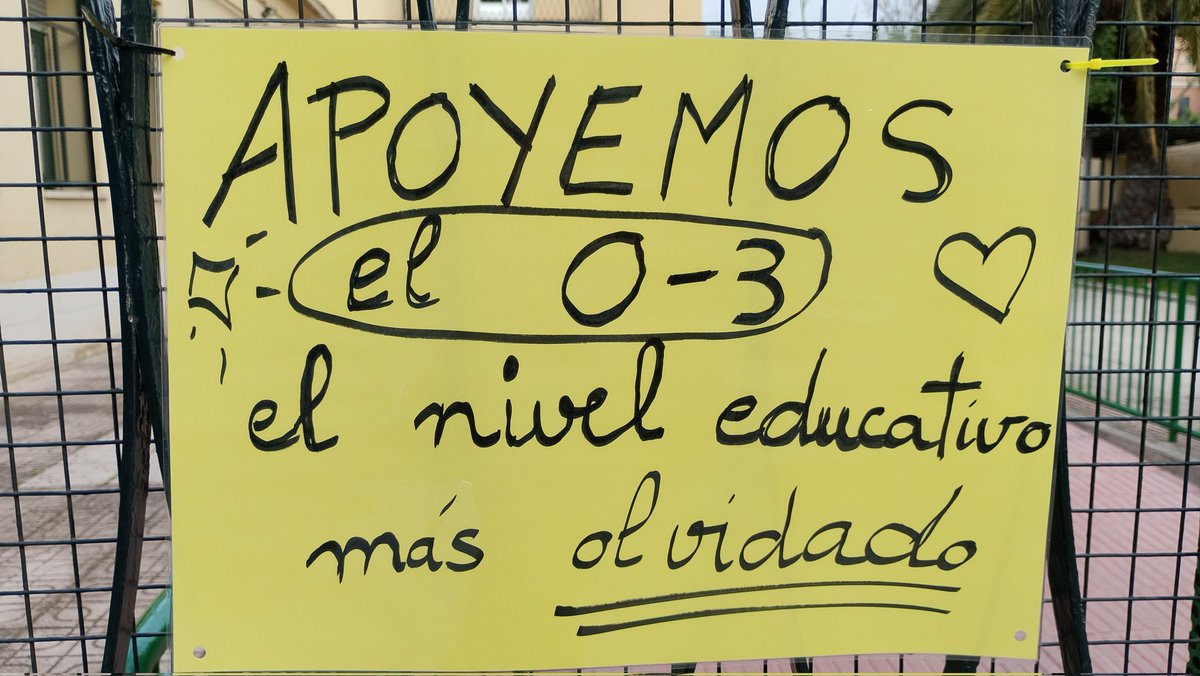 APOYEMOS
el 0-3
el nivel educativo
más olvidado